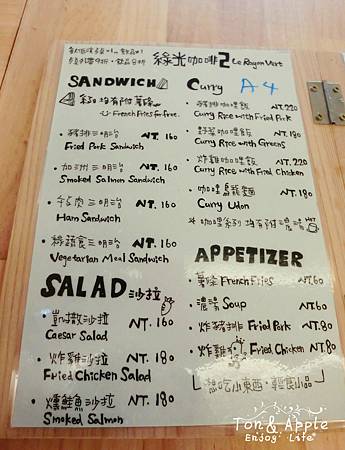 綠光咖啡2 Le Rayon Vert
SANDWICH
均附薯條
French Fries for free.
• 豬排三明治 NT. 160
Fried Pork Sandwich
• 加州三明治 NT. 160
Smoked Salmon Sandwich
三明治 NT. 160
Ham Sandwich
蔬食三明治 NT. 160
Vegetarian Meal Sandwich
SALAD 沙拉
• 凱撒沙拉 NT. 160
Caesar Salad
• 炸雞沙拉 NT. 180
Fried Chicken Salad
• 燻鮭魚沙拉 NT. 180
Smoked Salmon
Curry A4
• 豬排咖哩飯 NT. 220
Curry Rice with Fried Pork
• 野菜咖哩飯 NT. 180
Curry Rice with Greens
• 炸雞咖哩飯 NT. 220
Curry Rice with Fried Chicken
• 咖哩烏龍麵 NT. 180
Curry Udon
* 咖哩系列均有附濃湯
APPETIZER
• 薯條 French Fries NT. 60
• 濃湯 Soup NT. 60
• 炸豬排 Fried Pork NT. 80
• 炸雞 Fried Chicken NT. 80
想吃小東西·輕食小品
Ton & Apple
Enjoy Life